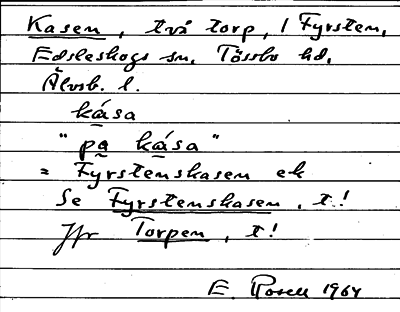 Kasen, två torp, / Fyrsten,
Edsleskogs sn. Tössbo hd.
Älvsb. l.
kása
"på kása"
= Fyrstenskasen ek
Se Fyrstenskasen, t.!
Jfr Torpen, t!
E. Rosell 1964